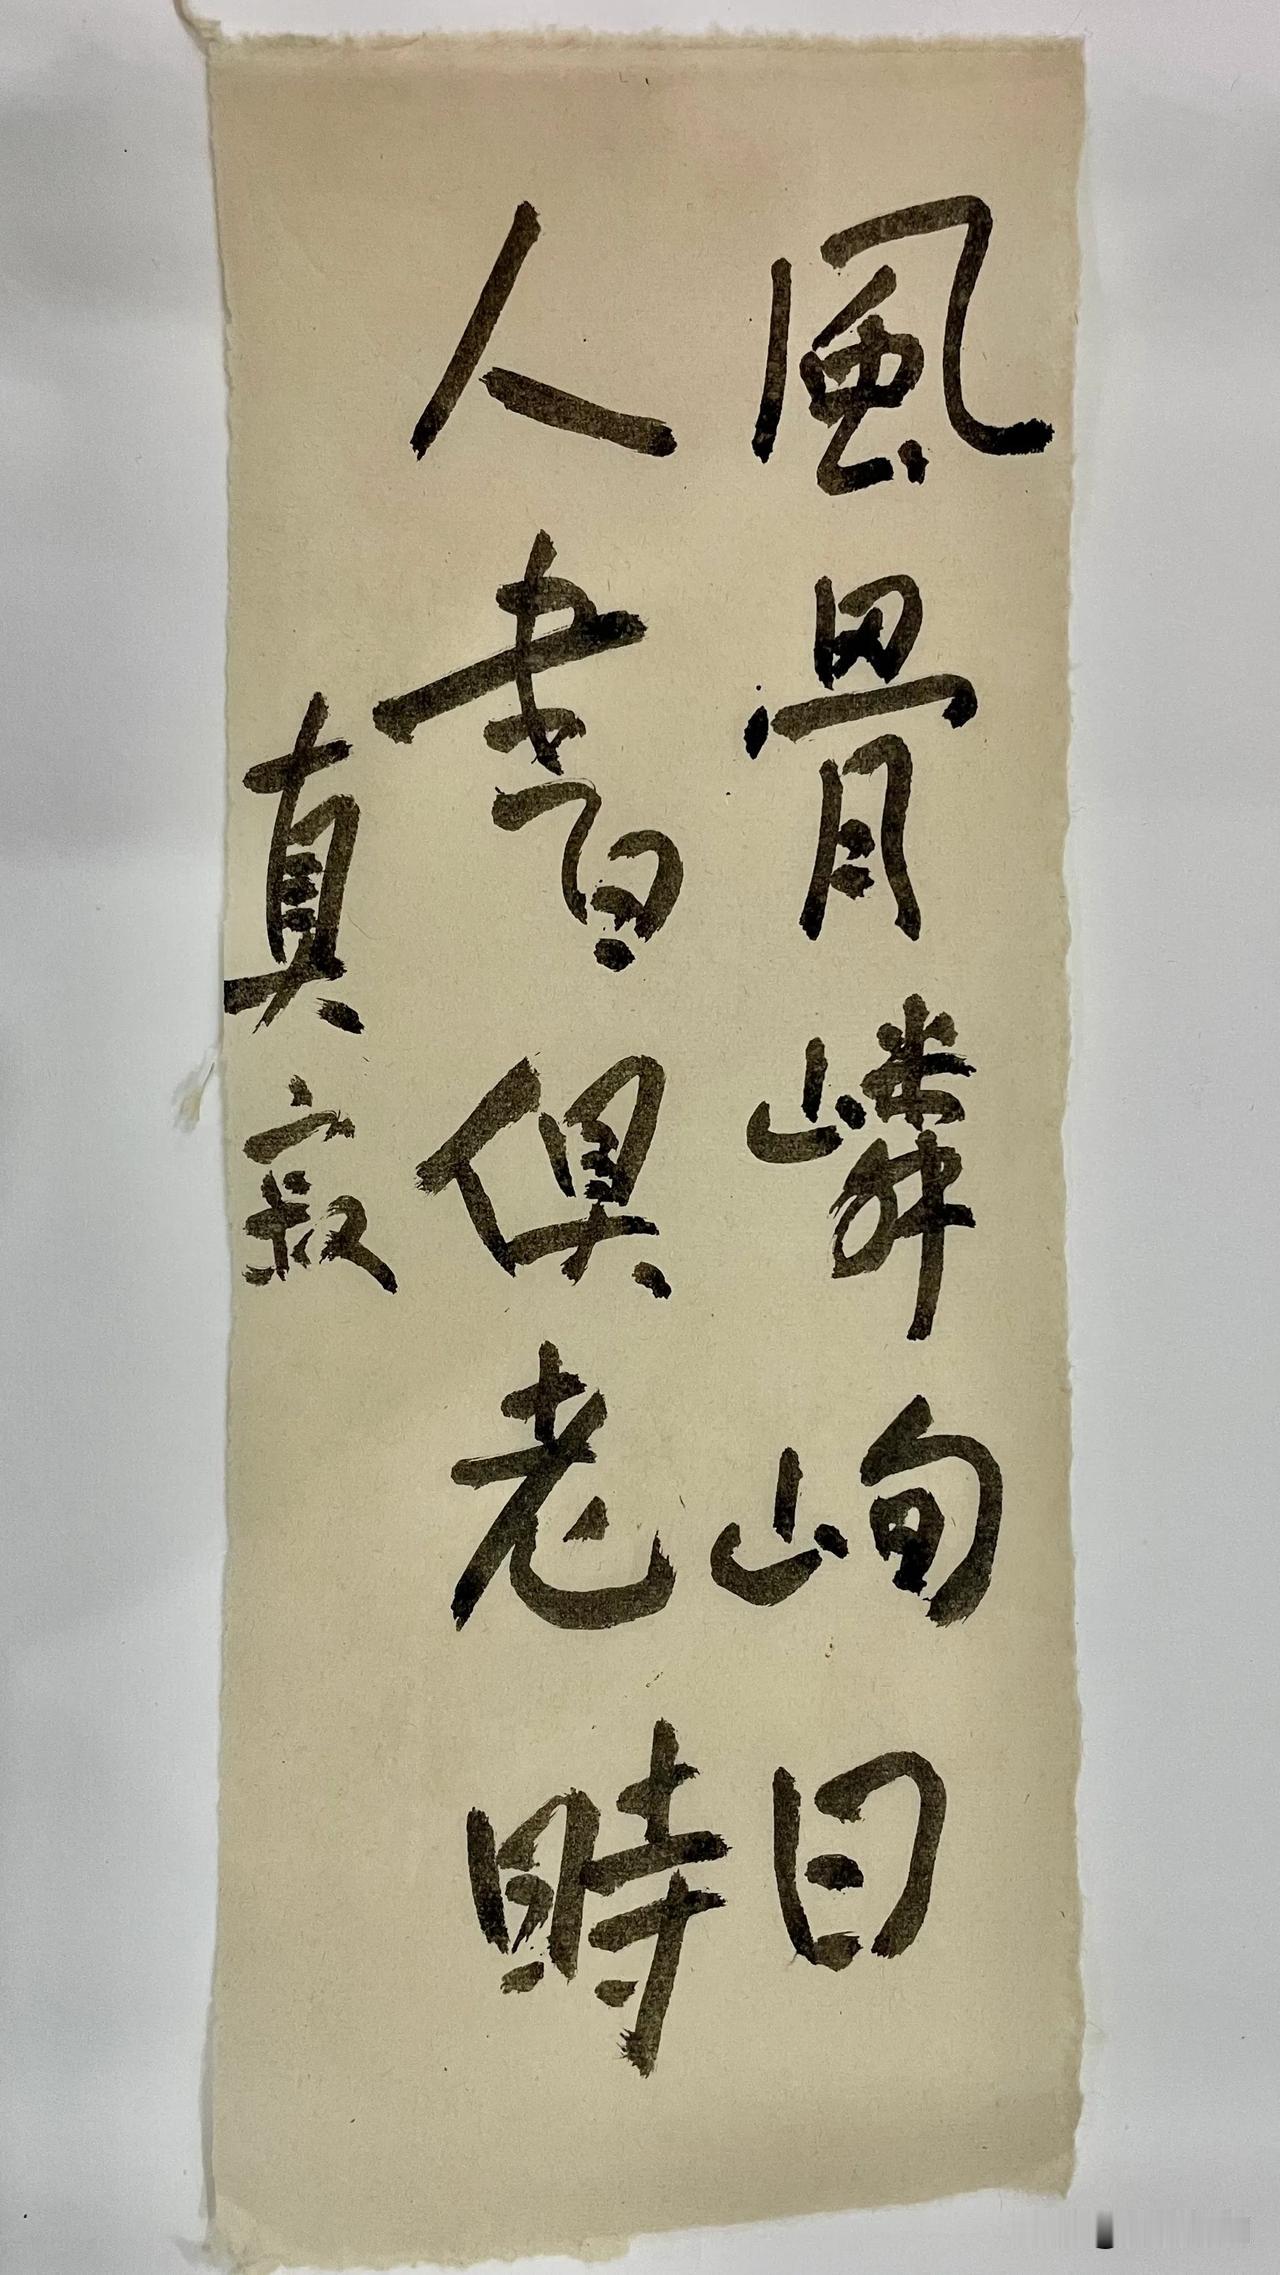 風骨嶙峋日
人書俱老時
真寂